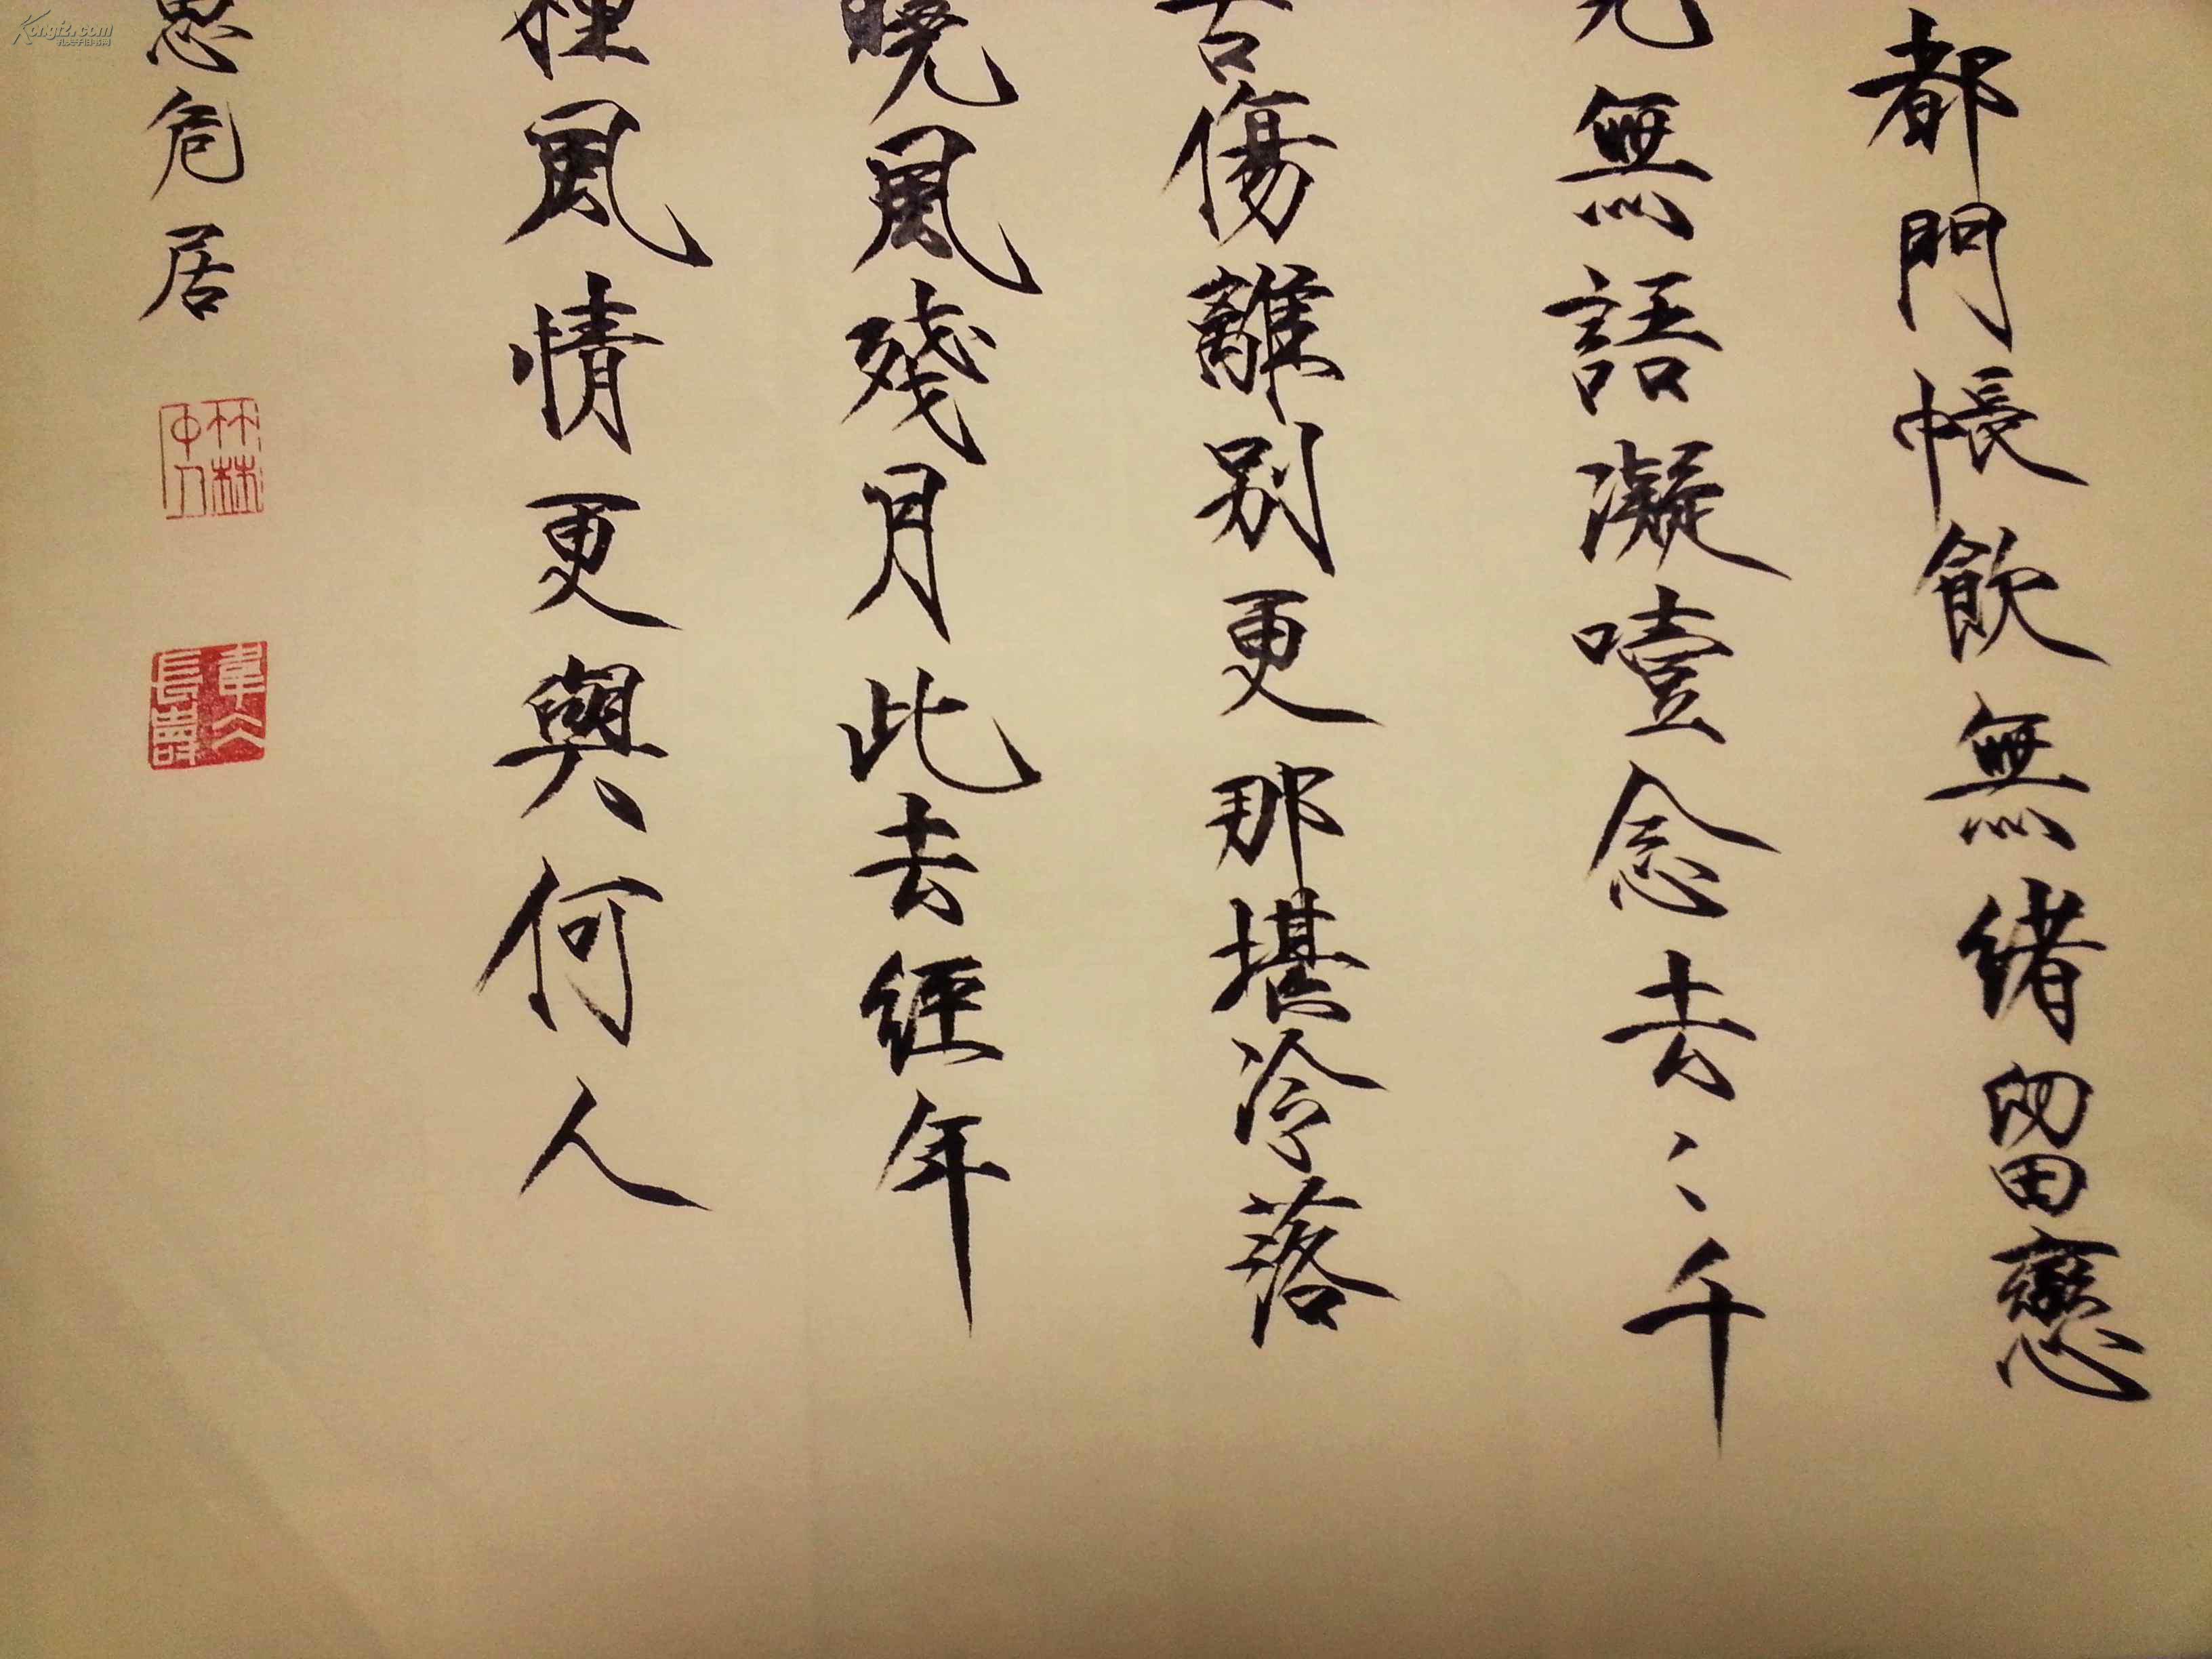 都門帳飲無緒留戀
無語凝噎念去〻千
古傷離別更那堪冷落
曉風殘月此去經年
種風情更與何人
思危居
韋六
長壽
Kongfz.com
孔夫子旧书网